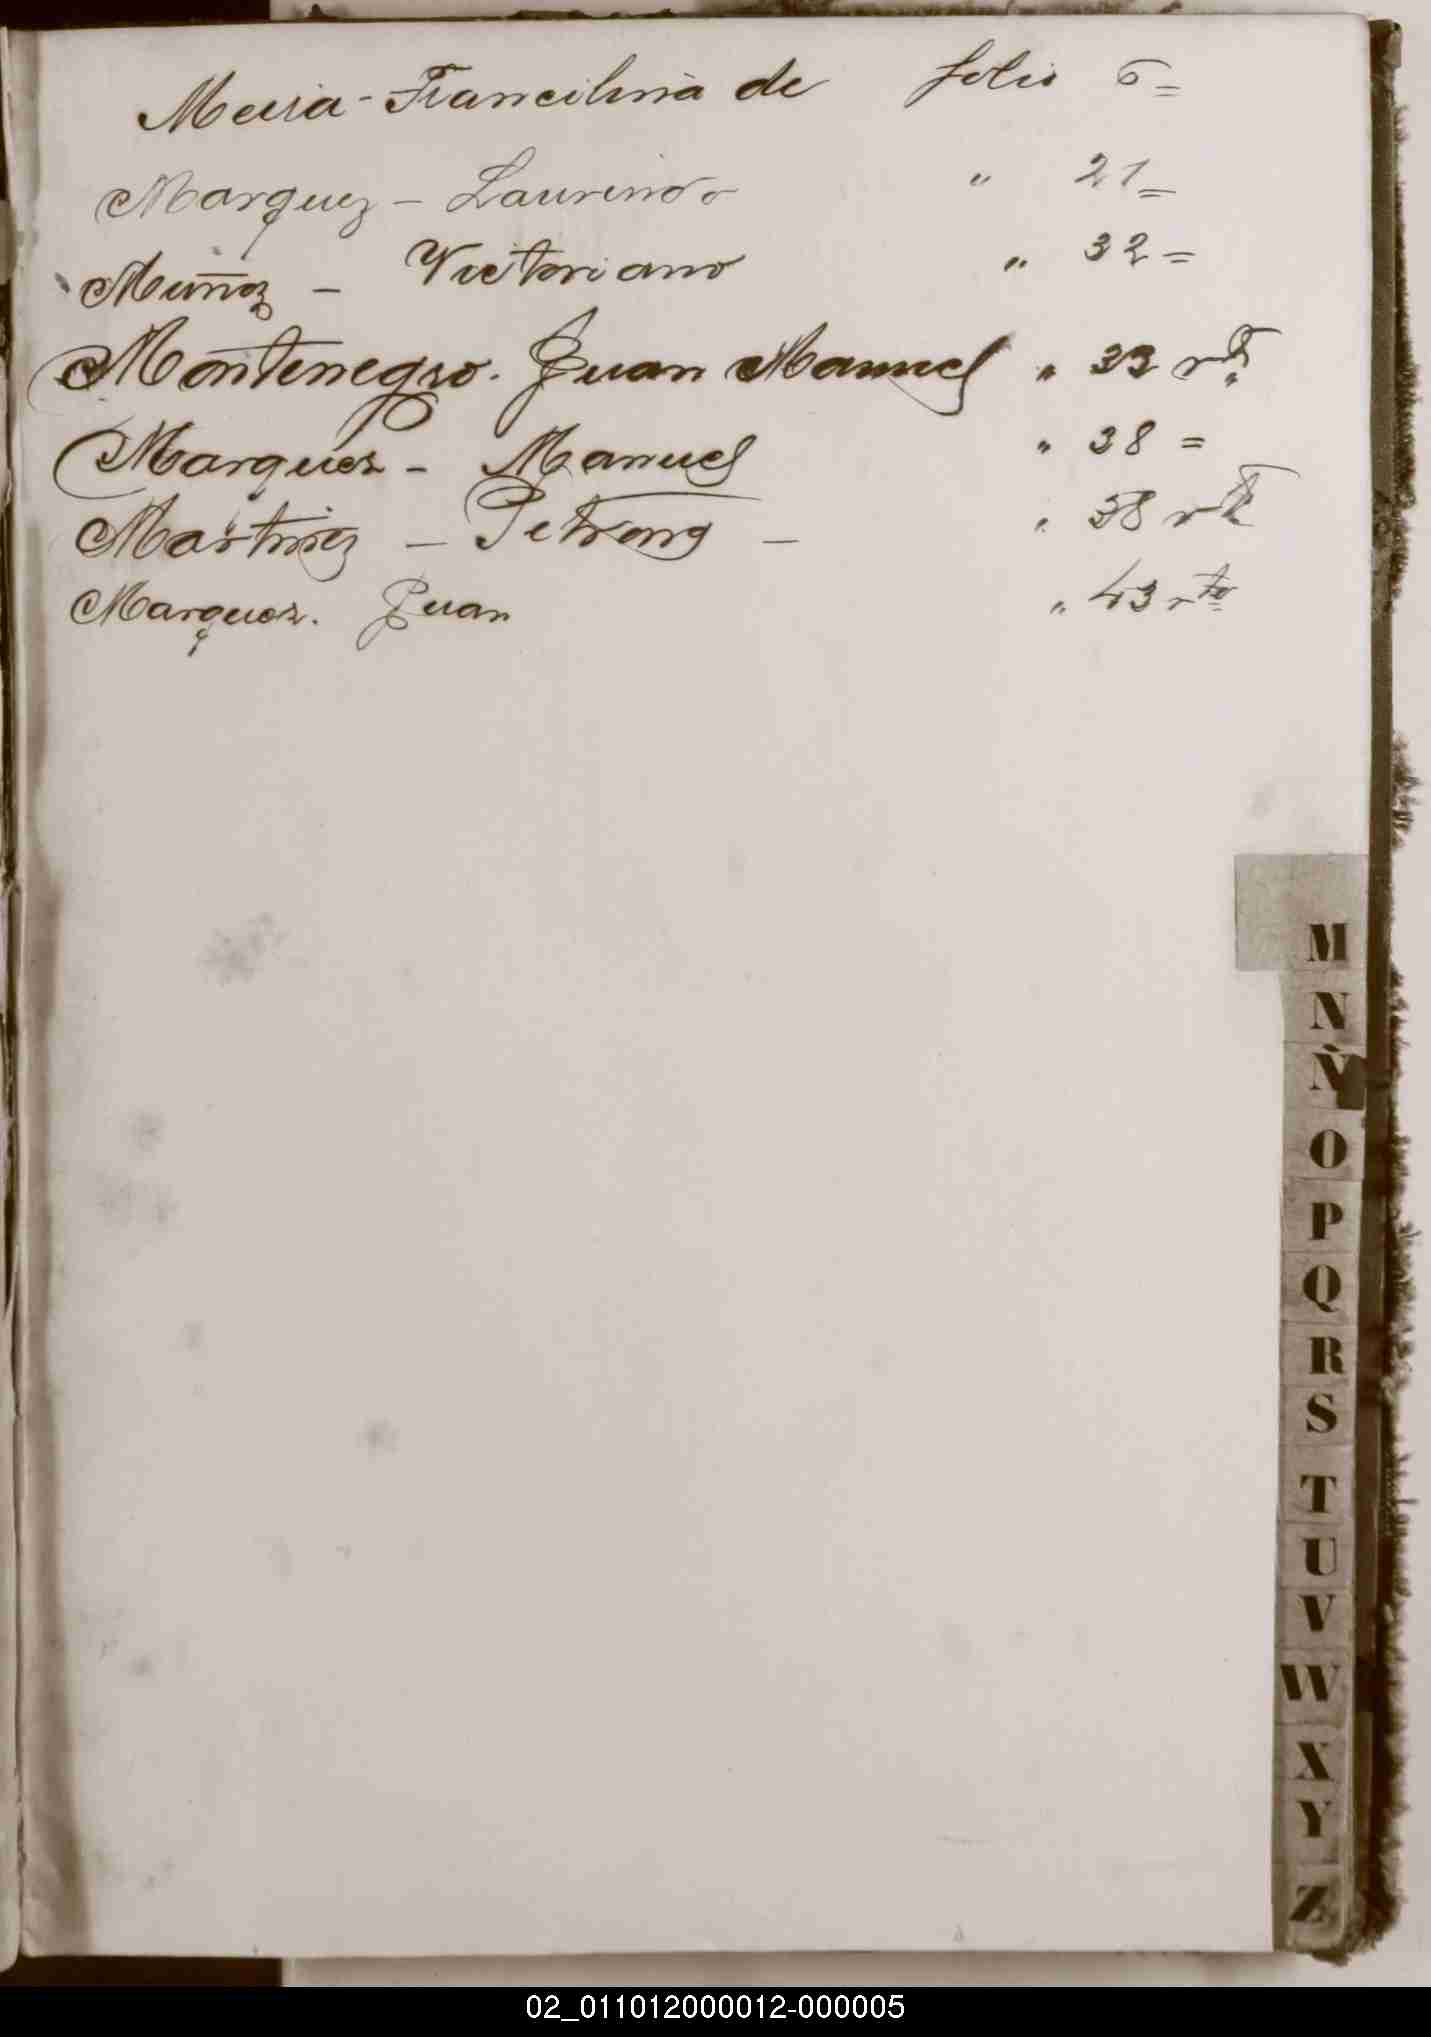 Meria - Francilina de folio 6 =
Marquez - Laurindo " 21 =
Muñoz - Victoriano " 32 =
Montenegro. Juan Manuel " 33 rto
Marquez - Manuel " 38 =
Martinez - Petrona - " 38 rto
Marquez. Juan " 43 rto
M
N
Ñ
O
P
Q
R
S
T
U
V
W
X
Y
Z
02_011012000012-000005